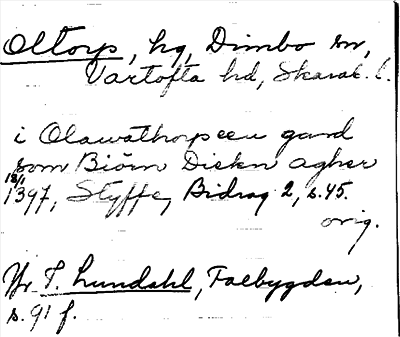 Oltorp, hg, Dimbo sn,
Vartofta hd, Skarab. l.
i Olawathorpeeu gard
som Biörn Diekn agher
13/1 1397, Styffe, Bidrag 2, s. 45.
orig.
Yr. I. Lundahl, Falbygden,
s. 91 f.